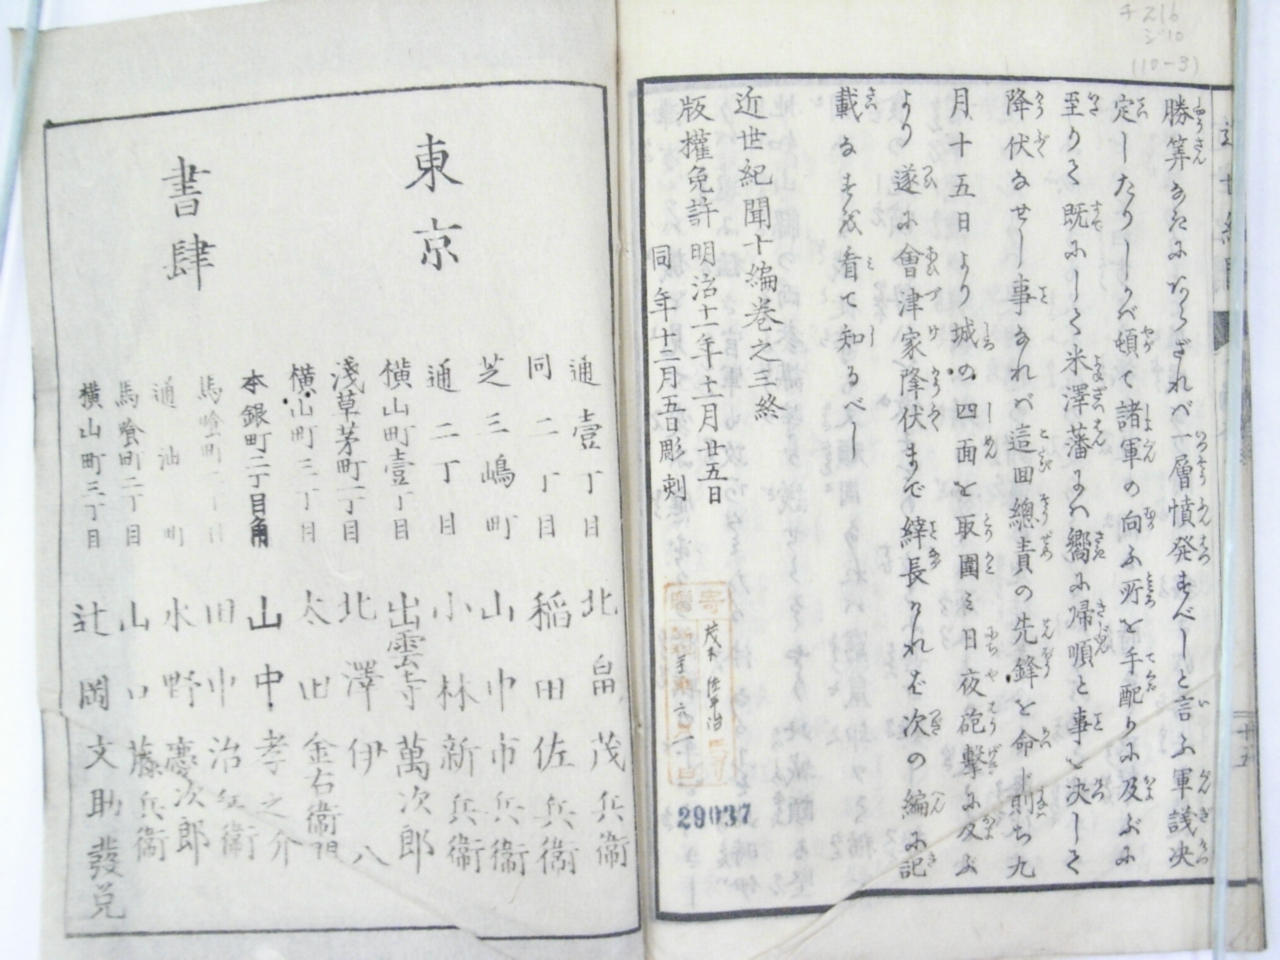 チ216
ジ10
(10-3)
勝筭あきにあらざれバ一層憤発すべしと言ふ軍議决
定したりしかバ頓て諸軍の向ふ所を手配りに及ぶに
至りて既にして米澤藩にハ嚮に帰順と事を决して
降伏なせし事なれバ這囬總責の先鋒を命じ則ち九
月十五日より城の四面を取圍ミ日夜砲撃に及ぶ
より遂に會津家降伏まで緯長けれど次の編に記
載なすを看て知るべし
近世紀聞十編巻之三終
版權免許 明治十一年十一月廿五日
同年十二月五日彫刻
29037
東京
書肆
通壹丁目 北畠茂兵衛
同二丁目 稲田佐兵衛
芝三嶋町 山中市兵衛
通二丁目 小林新兵衛
横山町壹丁目 出雲寺萬次郎
淺草茅町二丁目 北澤伊八
横山町三丁目 太田金右衛門
本銀町二丁目角 山中孝之介
馬喰町二丁目 田中治兵衛
通油町 水野慶次郎
馬喰町二丁目 山口藤兵衛
横山町三丁目 辻岡文助發兌